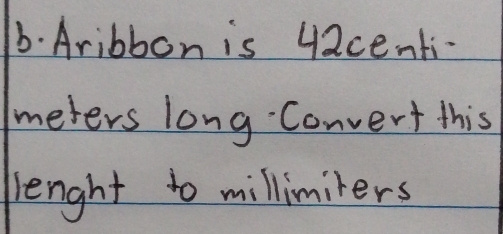 b. A ribbon is 42centi-
meters long. Convert this
lenght to millimiters